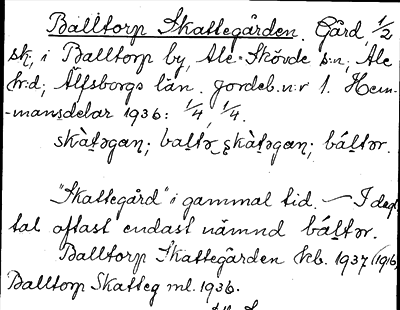 Balltorp Skattegården. Gård 1/2
sk, i Balltorp by, Ale-Skövde s:n, Ale
h:d, Älfsborgs län. Jordeb. n:r 1. Hem-
-mansdelar 1936: 1/4 1/4.
skàt̯əgaɳ; baltə skàt̯əgaɳ; báltər.
"Skattegård" i gammal tid. — I dagl.
tal oftast endast nämnd báltər.
Balltorp Skattegården kb. 1937 (1916,
Balltorp Skatteg ml. 1936.